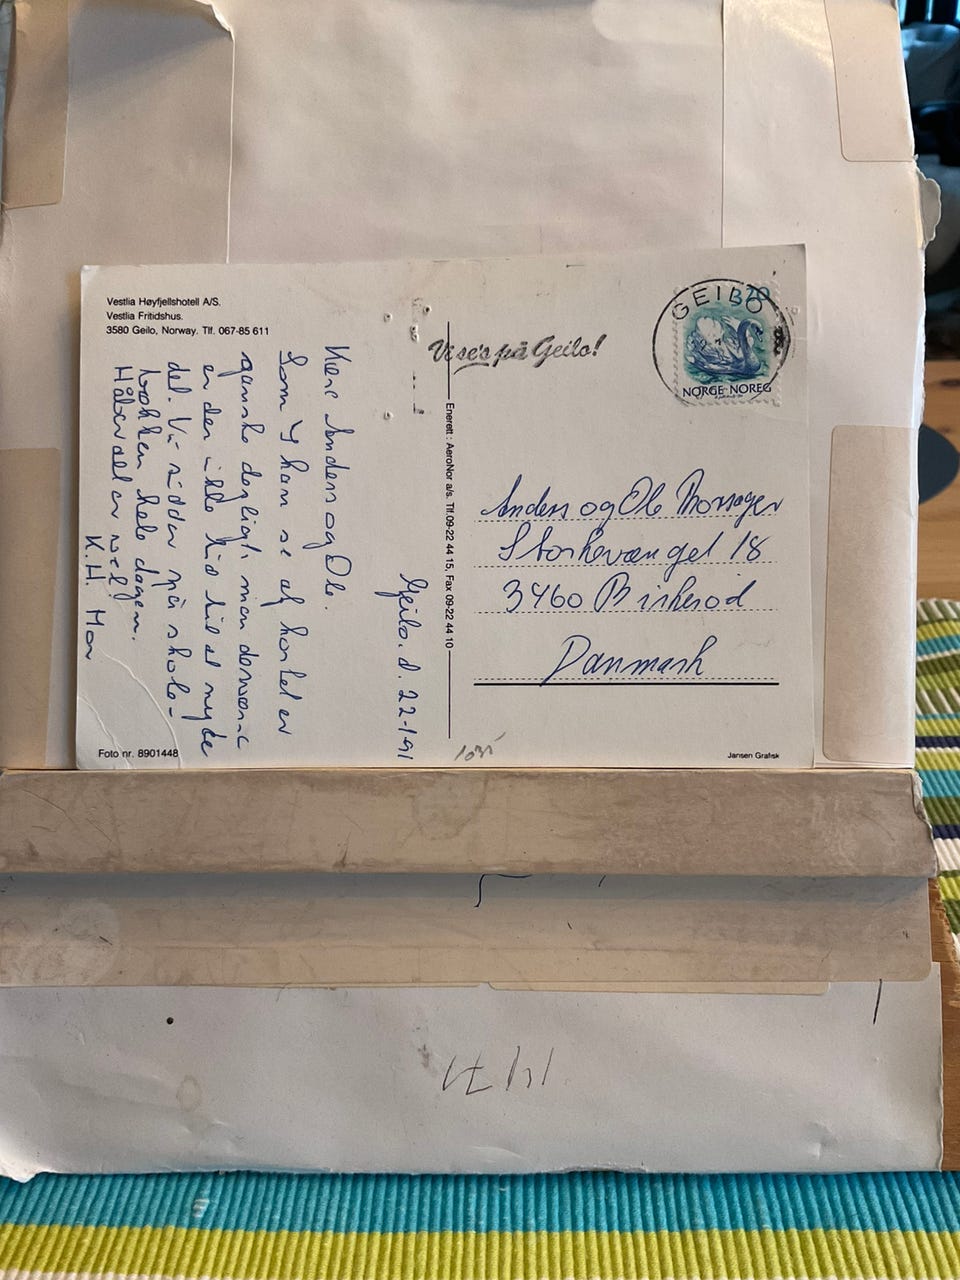 Vestlia Høyfjellshotell A/S.
Vestlia Fritidshus.
3580 Geilo, Norway. Tlf. 067-85 611
Vi se's på Geilo!
GEILO
320
NORGE NOREG
Geilo. d. 22-1 91
Kære Anders og Ole.
Som I kan se af kortet er
ganske dejligt, men desværre
er den ikke hid til at nyde
det. Vi sidder på skole-
bækken hele dagen.
Håber alt er vel
K.H. Mor
Enerett: AeroNor a/s. Tlf. 09-22 44 15, Fax 09-22 44 10
Anders og Ole
Storkevænget 18
3460 Birkerød
Danmark
Foto nr. 8901448
1035
Jansen Grafisk